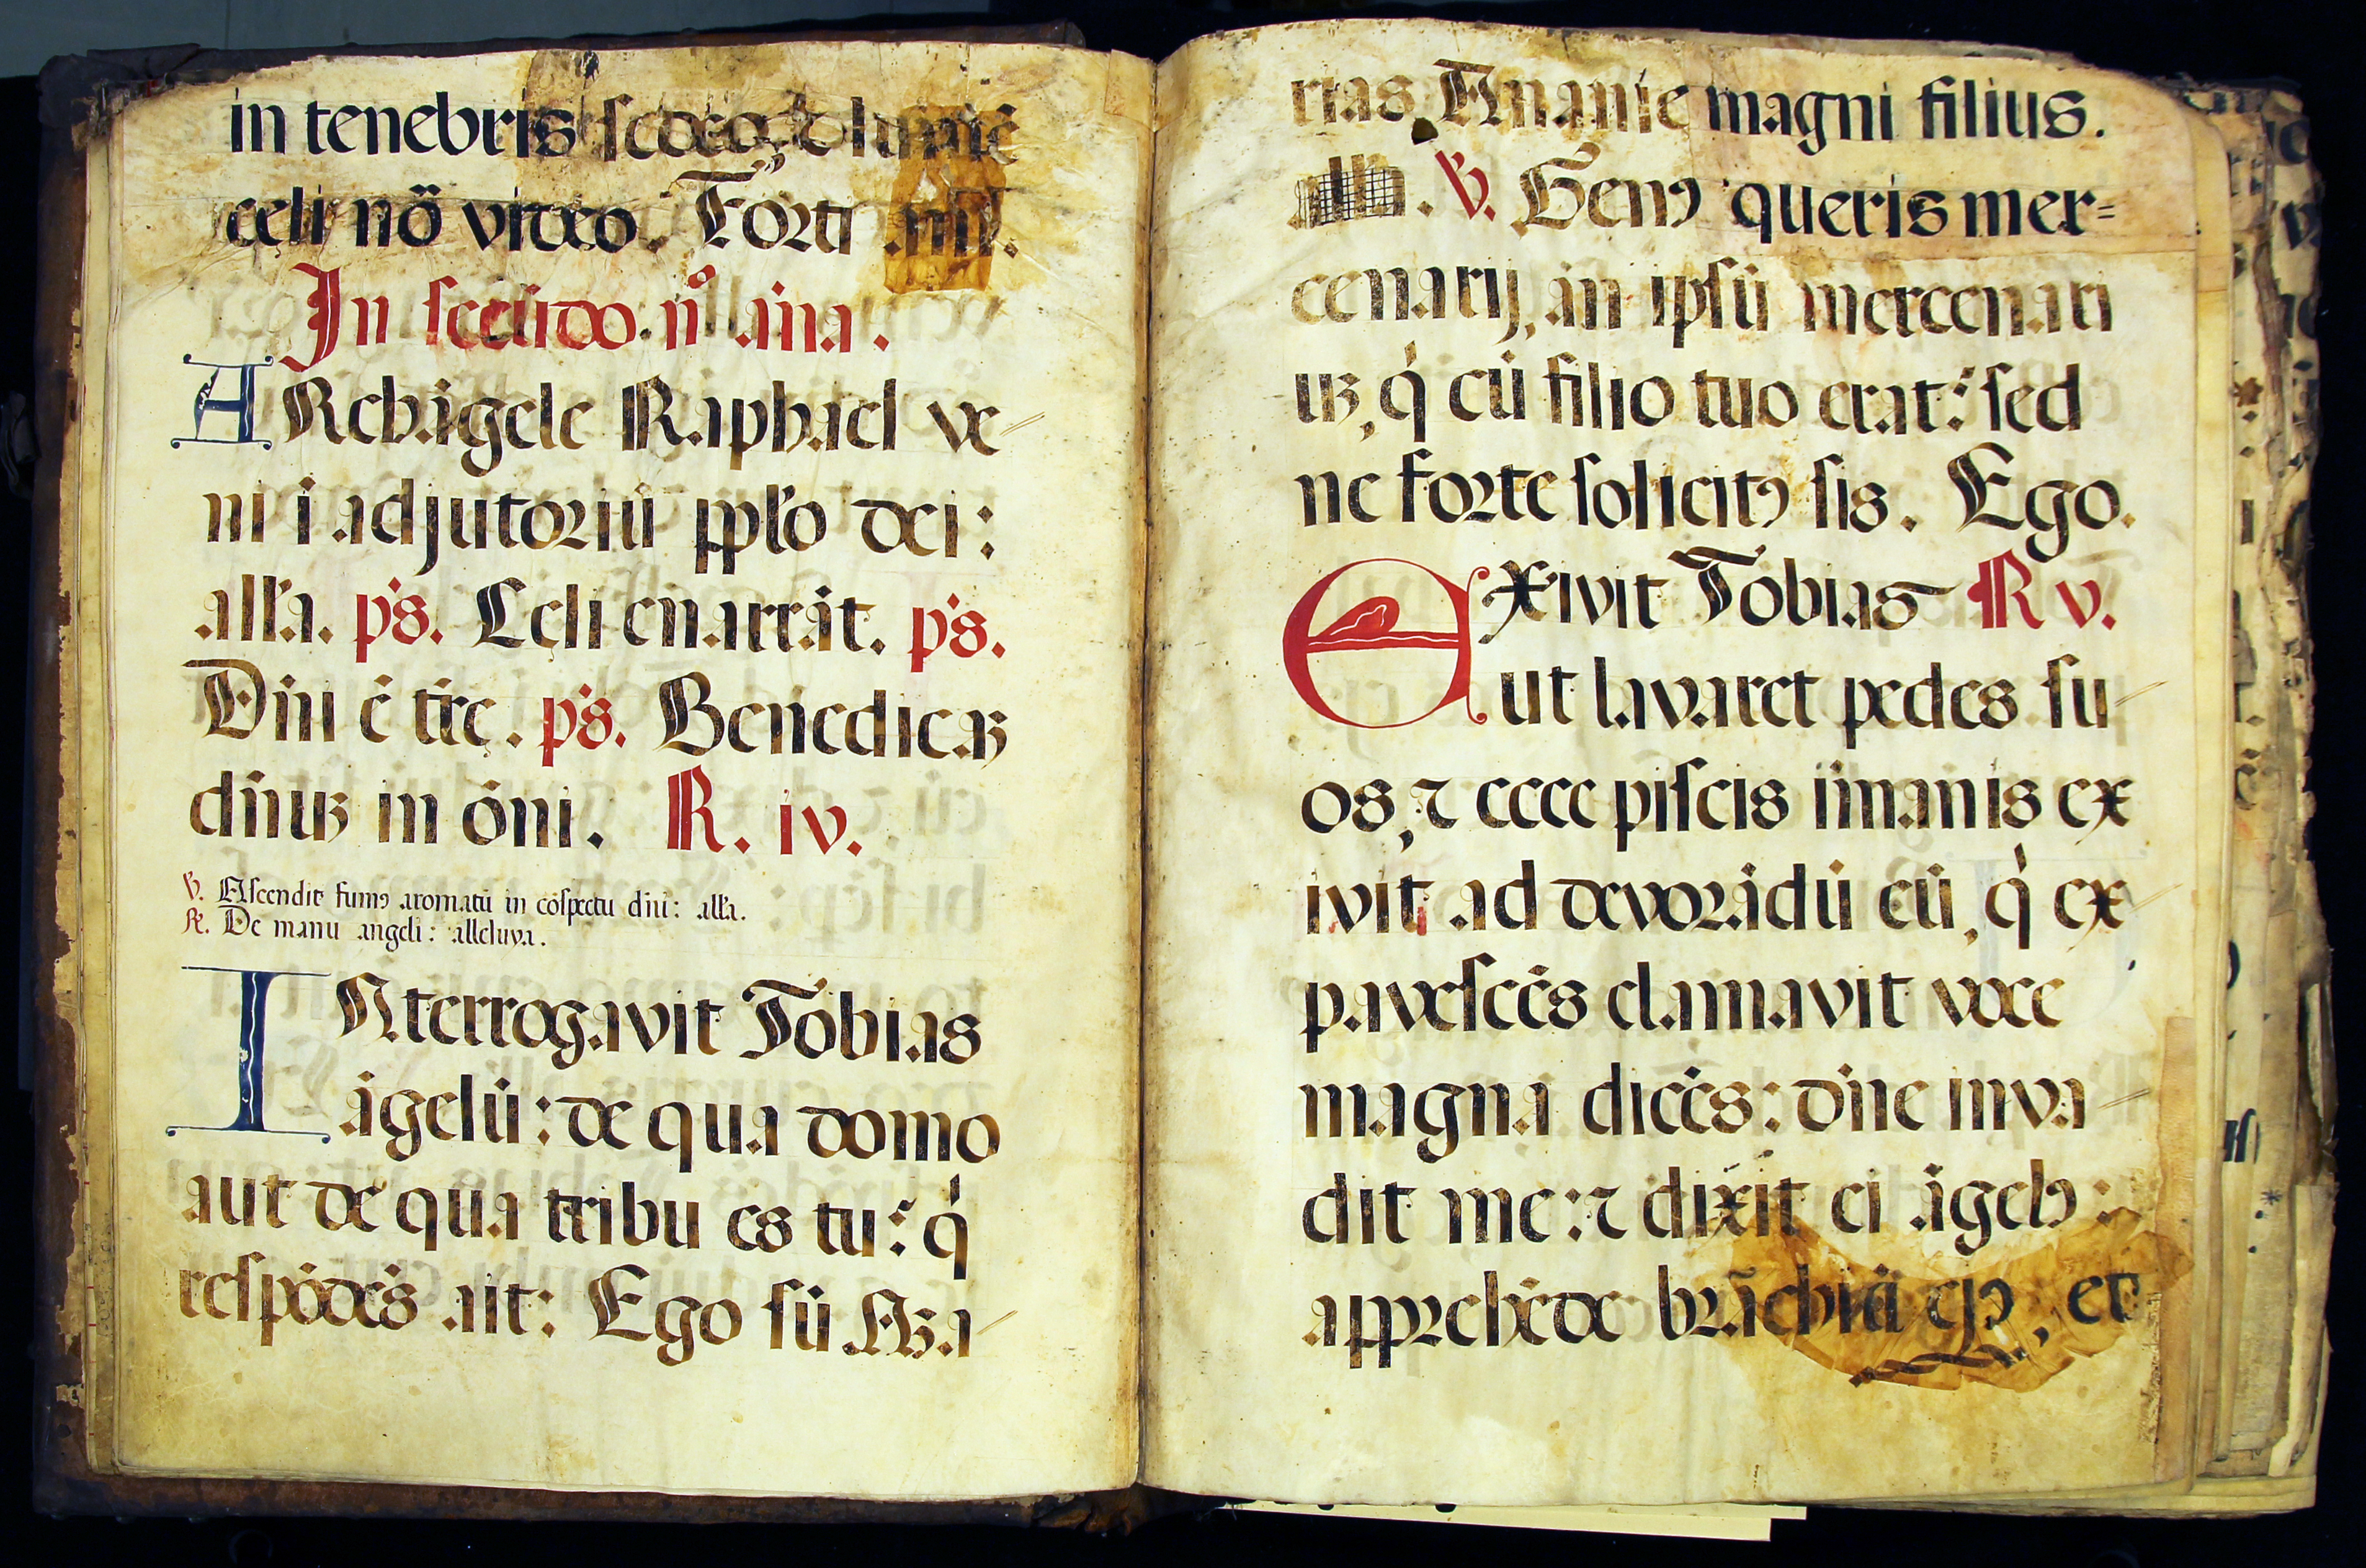 in tenebris sedeo, & lumē
cęli nō video. Forti .iiij.
In scēudo. n° aīna.
ARchāgele Raphael ve
ni ī adjutoriū pplo dei:
alľa. ps. Cęli enarrāt. ps.
Dīni ē tīrę. ps. Benedicaꝫ
dīnuꝫ in ōni. R. iv.
℣. Ascendit fumꝰ aromatū in cōspectu dīni: alľa.
℟. De manu angeli: alleluya.
INterrogavit Tobias
āgelū: de qua domo
aut de qua tribu es tu: q̇
respōdēs ait: Ego sū Aꝫa
rias Ananie magni filius.
℣. Genꝰ queris mer=
cenarij, an ipsū mercenari
uꝫ, q̇ cū filio tuo erat: sed
ne forte solicitꝰ sis. Ego.
EXivit Tobias R v.
ut lavaret pedes su
os, ⁊ ecce piscis īmanis ex
ivit ad devorādū eū, q̇ ex
pavescēs clamavit voce
magna dicēs: dīne inva
dit me: ⁊ dixit ei āgelꝰ:
apprehēde brāchiā ejꝰ, et